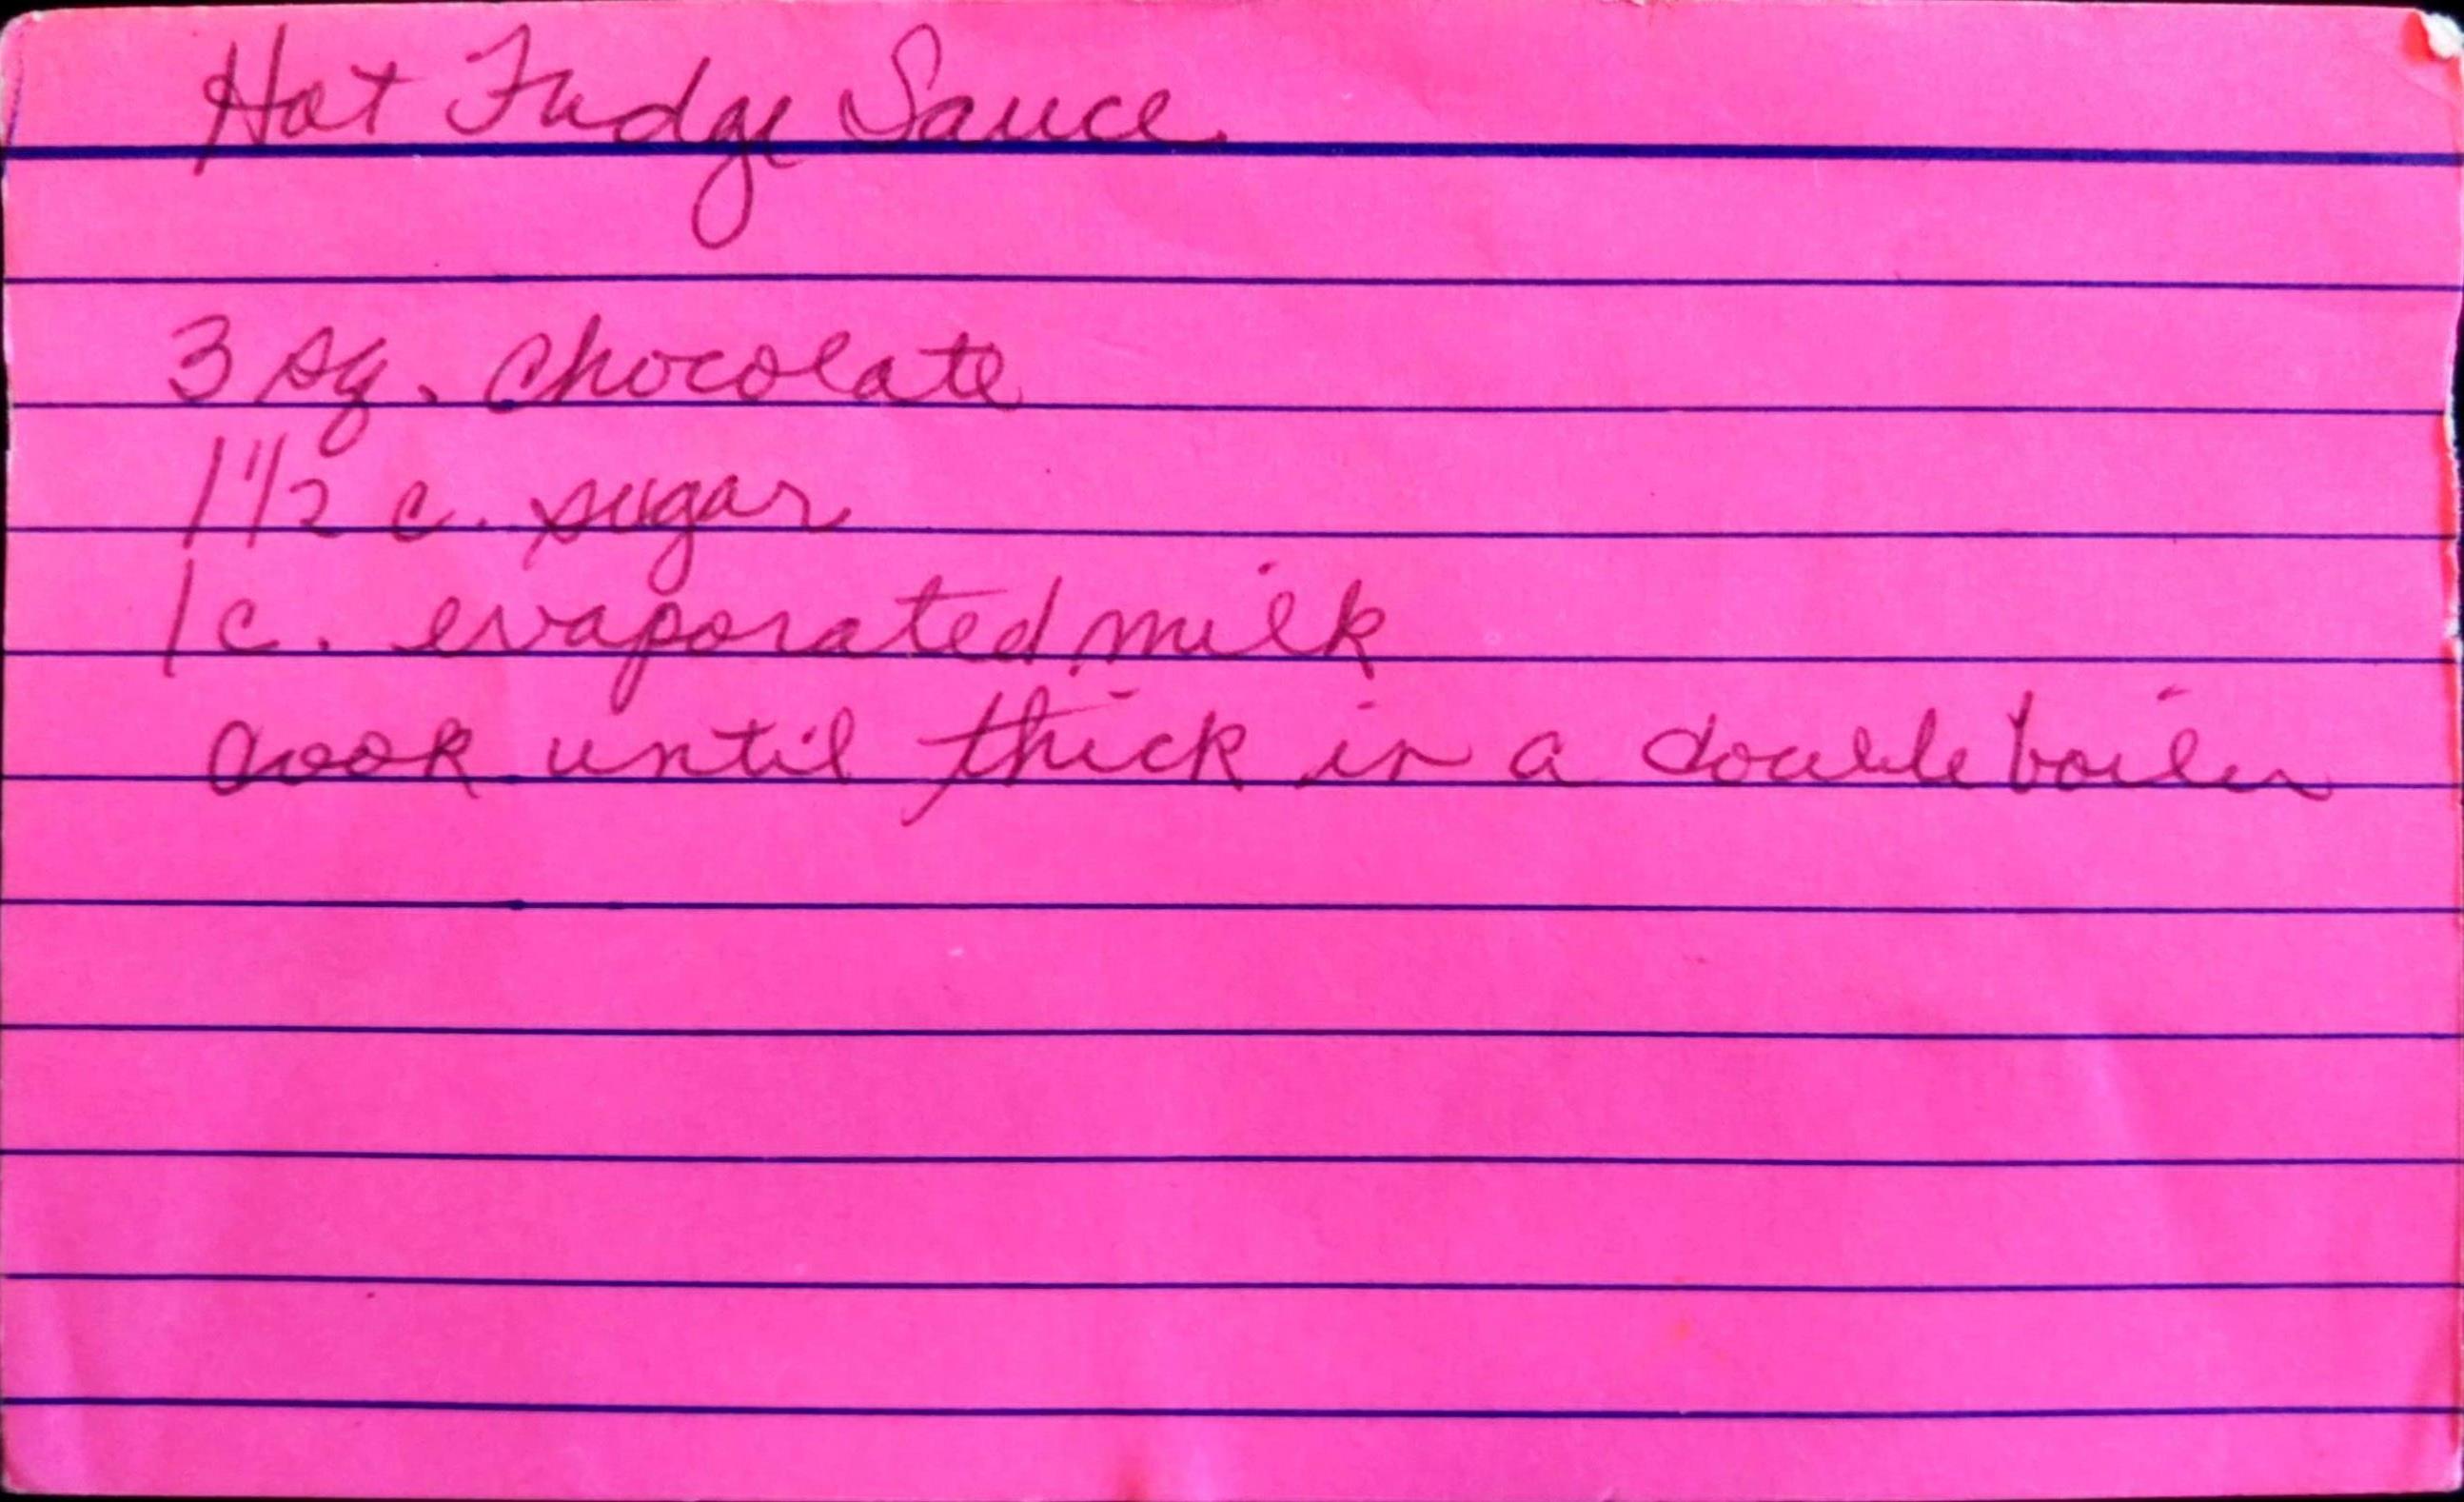 Hot Fudge Sauce
3 sq. chocolate
1 1/2 c. sugar
1 c. evaporated milk
cook until thick in a double boiler